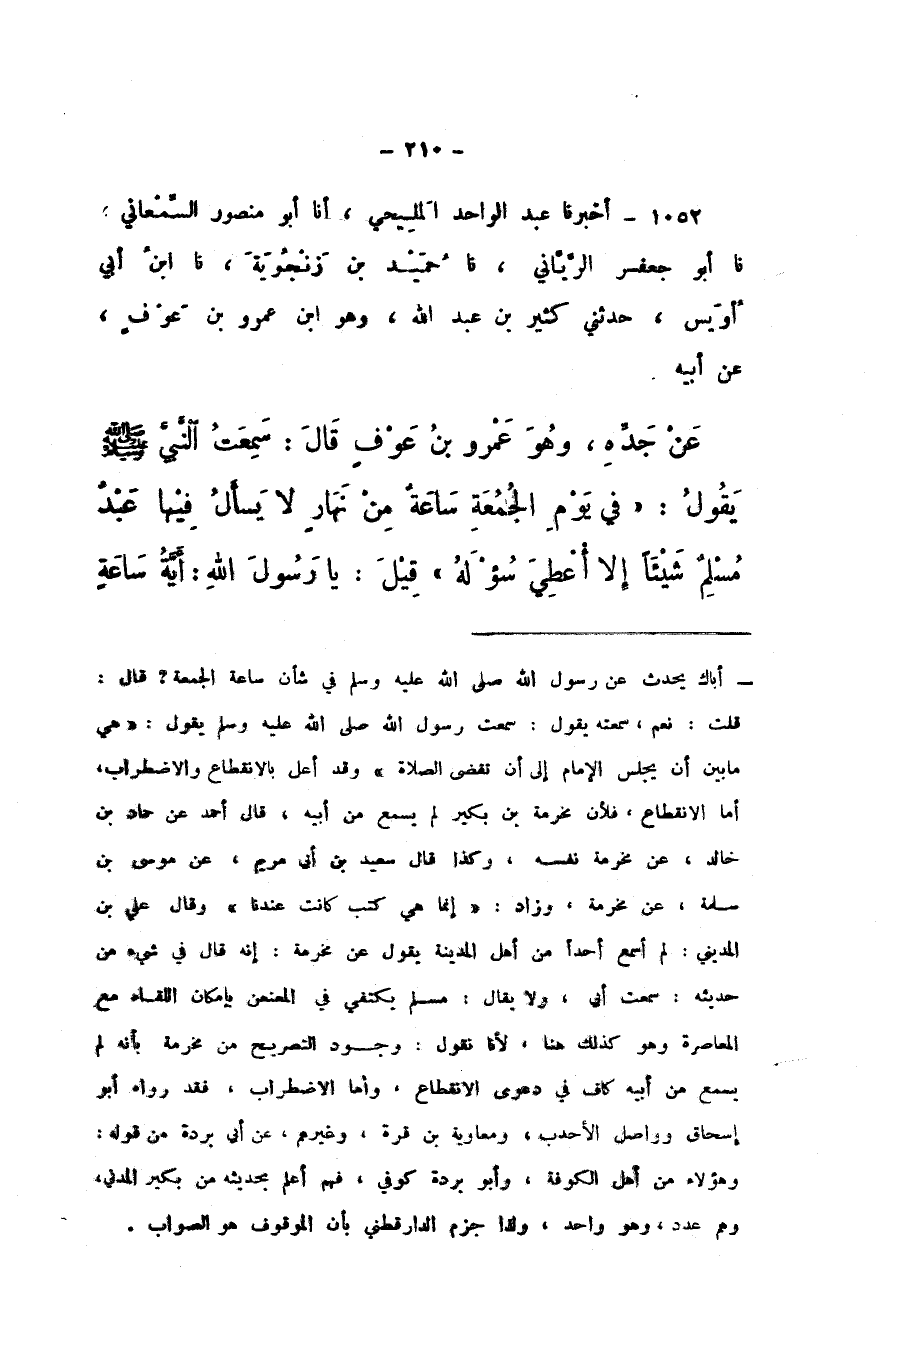 - ٢١٠ -
١٠٥٢ - أخبرنا عبد الواحد المَليحي ، أنا أبو منصور السَّمْعاني ؛
نا أبو جعفر الرَّيَّاني ، نا حُمَيْد بن زَنْجُويَةَ ، نا ابنُ أبي
أُوَيس ، حدثني كثير بن عبد الله ، وهو ابن عمرو بن عَوْفٍ ،
عن أبيه .
عَنْ جَدِّهِ ، وهُوَ عَمْرو بنُ عَوْفٍ قَالَ : سَمِعَتُ النَّبِيَّ ﷺ
يَقُولُ : « في يَوْمِ الجُمُعَةِ سَاعَةٌ مِنْ نَهَارٍ لا يَسأَلُ فِيْها عَبْدٌ
مُسْلِمٌ شَيْئَاً إلا أُعْطِيَ سُؤْلَهُ » قِيْلَ : يا رَسُولَ اللهِ : أَيَّةُ سَاعَةٍ
ـ أباك يحدث عن رسول الله صلى الله عليه وسلم في شأن ساعة الجمعة ؟ قال :
قلت : نعم ، سمعته يقول : سمعت رسول الله صلى الله عليه وسلم يقول : « هي
مابين أن يجلس الإمام إلى أن تقضى الصلاة » وقد أعل بالانقطاع والاضطراب،
أما الانقطاع ، فلأن مخرمة بن بكير لم يسمع من أبيه ، قال أحمد عن حماد بن
خالد ، عن مخرمة نفسه ، وكذا قال سعيد بن أبي مريم ، عن موسى بن
سلمة ، عن مخرمة ، وزاد : « إنما هي كتب كانت عندنا » وقال علي بن
المديني : لم أسمع أحداً من أهل المدينة يقول عن مخرمة : إنه قال في شيء من
حديثه : سمعت أبي ، ولا يقال : مسلم يكتفي في المعنعن بإمكان اللقاء مع
المعاصرة وهو كذلك هنا ، لأنا نقول : وجود التصريح من مخرمة بأنه لم
يسمع من أبيه كاف في دعوى الانقطاع ، وأما الاضطراب ، فقد رواه أبو
إسحاق وواصل الأحدب ، ومعاوية بن قرة ، وغيرهم ، عن أبي بردة من قوله :
وهؤلاء من أهل الكوفة ، وأبو بردة كوفي ، فهم أعلم بحديثه من بكير المدني،
وهم عدد ، وهو واحد ، ولذا جزم الدارقطني بأن الموقوف هو الصواب .